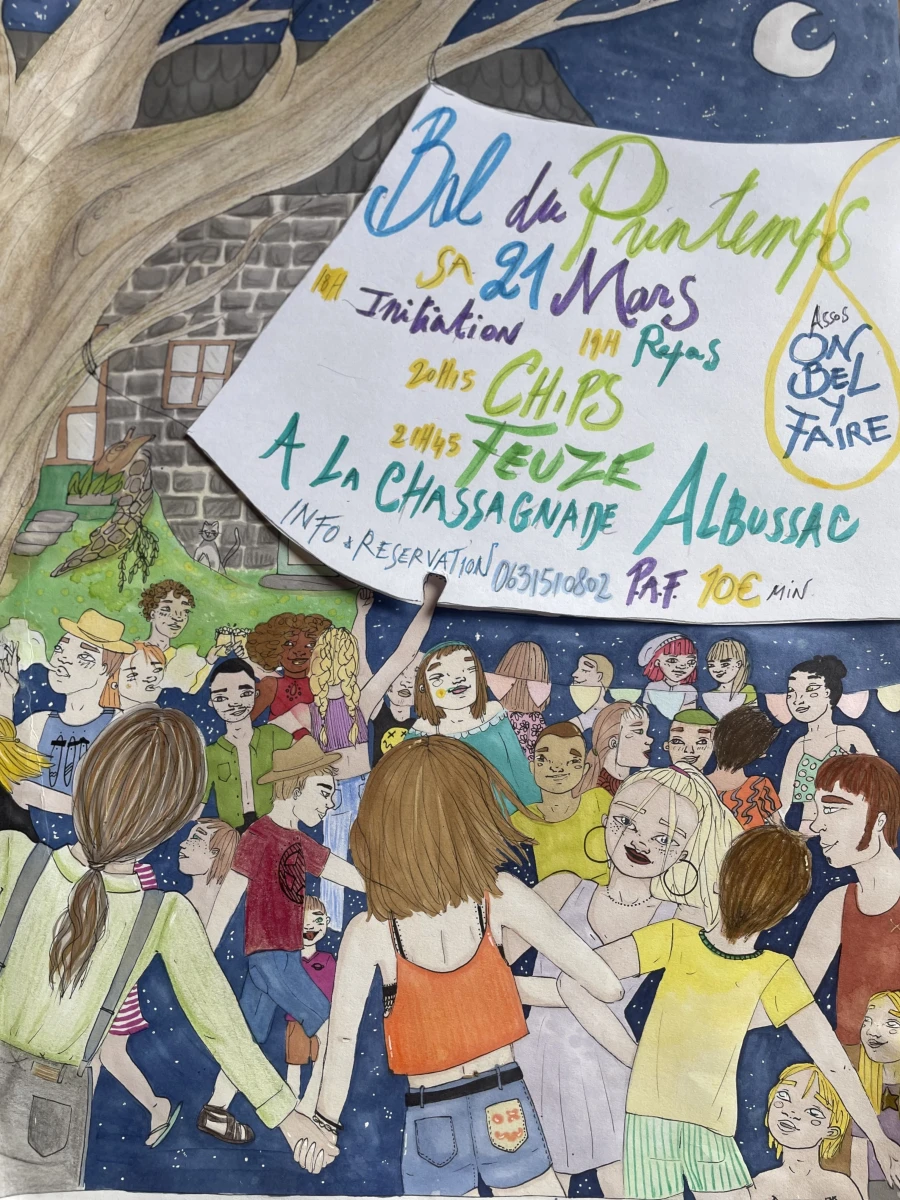 Bal du Printemps
SA 21 Mars
18H Initiation
19H Repas
20H15 CHIPS
21H45 FEUZE
A LA CHASSAGNADE ALBUSSAC
INFO & RESERVATION 0631510802 P.A.F. 10€ MIN
Assos
ON
BEL
Y
FAIRE